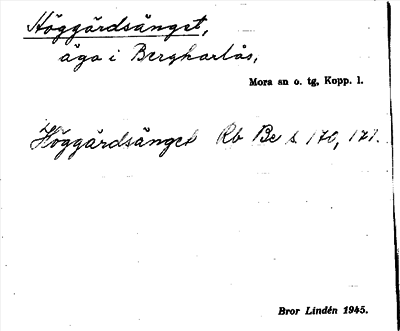 Höggårdsänget,
äga i Bergkarlås,
Mora sn o. tg, Kopp. l.
Höggårdsänget Rb Be s 170, 171.
Bror Lindén 1945.